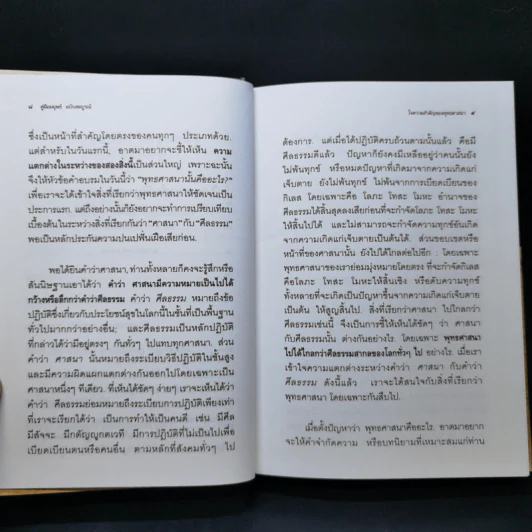 ๘ คู่มือมนุษย์ ฉบับสมบูรณ์
ซึ่งเป็นหน้าที่สำคัญโดยตรงของคนทุกๆ ประเภทด้วย.
แต่สำหรับในวันแรกนี้, อาตมาอยากจะชี้ให้เห็น ความ
แตกต่างในระหว่างของสองสิ่งนี้เป็นส่วนใหญ่ เพราะฉะนั้น
จึงให้หัวข้อคำอบรมในวันนี้ว่า “พุทธศาสนานั้นคืออะไร?”
เพื่อเราจะได้เข้าใจสิ่งที่เรียกว่าพุทธศาสนาให้ชัดเจนเป็น
ประการแรก. แต่ถึงอย่างนั้นก็ยังอยากจะทำการเปรียบเทียบ
เบื้องต้นในระหว่างสิ่งที่เรียกกันว่า “ศาสนา” กับ “ศีลธรรม”
พอเป็นหลักประกันความปนเปฟั่นเฝือเสียก่อน.
พอได้ยินคำว่าศาสนา, ท่านทั้งหลายก็คงจะรู้สึกหรือ
สันนิษฐานเอาได้ว่า คำว่า ศาสนามีความหมายเป็นไปได้
กว้างหรือลึกกว่าคำว่าศีลธรรม คำว่า ศีลธรรม หมายถึงข้อ
ปฏิบัติซึ่งเกี่ยวกับประโยชน์สุขในโลกนี้ในชั้นที่เป็นพื้นฐาน
ทั่วไปมากกว่าอย่างอื่น; และศีลธรรมเป็นหลักปฏิบัติ
ที่กล่าวได้ว่ามีอยู่ตรงๆ กันทั่วๆ ไปแทบทุกศาสนา. ส่วน
คำว่า ศาสนา นั้นหมายถึงระเบียบวิธีปฏิบัติในขั้นสูง
และมีความผิดแผกแตกต่างกันออกไปโดยเฉพาะเป็น
ศาสนาหนึ่งๆ ทีเดียว. ที่เห็นได้ชัดๆ ง่ายๆ เราจะเห็นได้ว่า
คำว่า ศีลธรรมย่อมหมายถึงระเบียบการปฏิบัติเพียงเท่า
ที่เราจะเรียกได้ว่า เป็นการทำให้เป็นคนดี เช่น มีศีล
มีสัจจะ มีกตัญญูกตเวที มีการปฏิบัติที่ไม่เป็นไปเพื่อ
เบียดเบียนตนหรือคนอื่น ตามหลักที่สังคมทั่วๆ ไป
ใจความสำคัญของพุทธศาสนา ๙
ต้องการ. แต่เมื่อได้ปฏิบัติครบถ้วนตามนั้นแล้ว คือมี
ศีลธรรมดีแล้ว ปัญหาก็ยังคงมีเหลืออยู่ว่าคนนั้นยัง
ไม่พ้นทุกข์ หรือหมดปัญหาที่เกิดมาจากความเกิดแก่
เจ็บตาย ยังไม่พ้นทุกข์ ไม่พ้นจากการเบียดเบียนของ
กิเลส โดยเฉพาะคือ โลภะ โทสะ โมหะ อำนาจของ
ศีลธรรมได้สิ้นสุดลงเสียก่อนที่จะกำจัดโลภะ โทสะ โมหะ
ให้สิ้นไปได้ และไม่สามารถจะกำจัดความทุกข์อันเกิด
จากความเกิดแก่เจ็บตายเป็นต้นได้. ส่วนขอบเขตหรือ
หน้าที่ของศาสนานั้น ยังไปได้ไกลต่อไปอีก : โดยเฉพาะ
พุทธศาสนาของเราย่อมมุ่งหมายโดยตรง ที่จะกำจัดกิเลส
คือโลภะ โทสะ โมหะให้สิ้นเชิง หรือดับความทุกข์
ทั้งหลายที่จะเกิดเป็นปัญหาขึ้นจากความเกิดแก่เจ็บตาย
เป็นต้น ให้สูญสิ้นไป. สิ่งที่เรียกว่าศาสนา ไปไกลกว่า
ศีลธรรมเช่นนี้ จึงเป็นการชี้ให้เห็นได้ชัดๆ ว่า ศาสนา
กับศีลธรรมนั้น ต่างกันอย่างไร. โดยเฉพาะ พุทธศาสนา
ไปได้ไกลกว่าศีลธรรมสากลของโลกทั่วๆ ไป อย่างไร. เมื่อเรา
เข้าใจความแตกต่างระหว่างคำว่า ศาสนา กับคำว่า
ศีลธรรม ดังนี้แล้ว เราจะได้สนใจกับสิ่งที่เรียกว่า
พุทธศาสนา โดยเฉพาะกันสืบไป.
เมื่อตั้งปัญหาว่า พุทธศาสนาคืออะไร, อาตมาอยาก
จะให้คำจำกัดความ หรือบทนิยามที่เหมาะสมแก่ท่าน